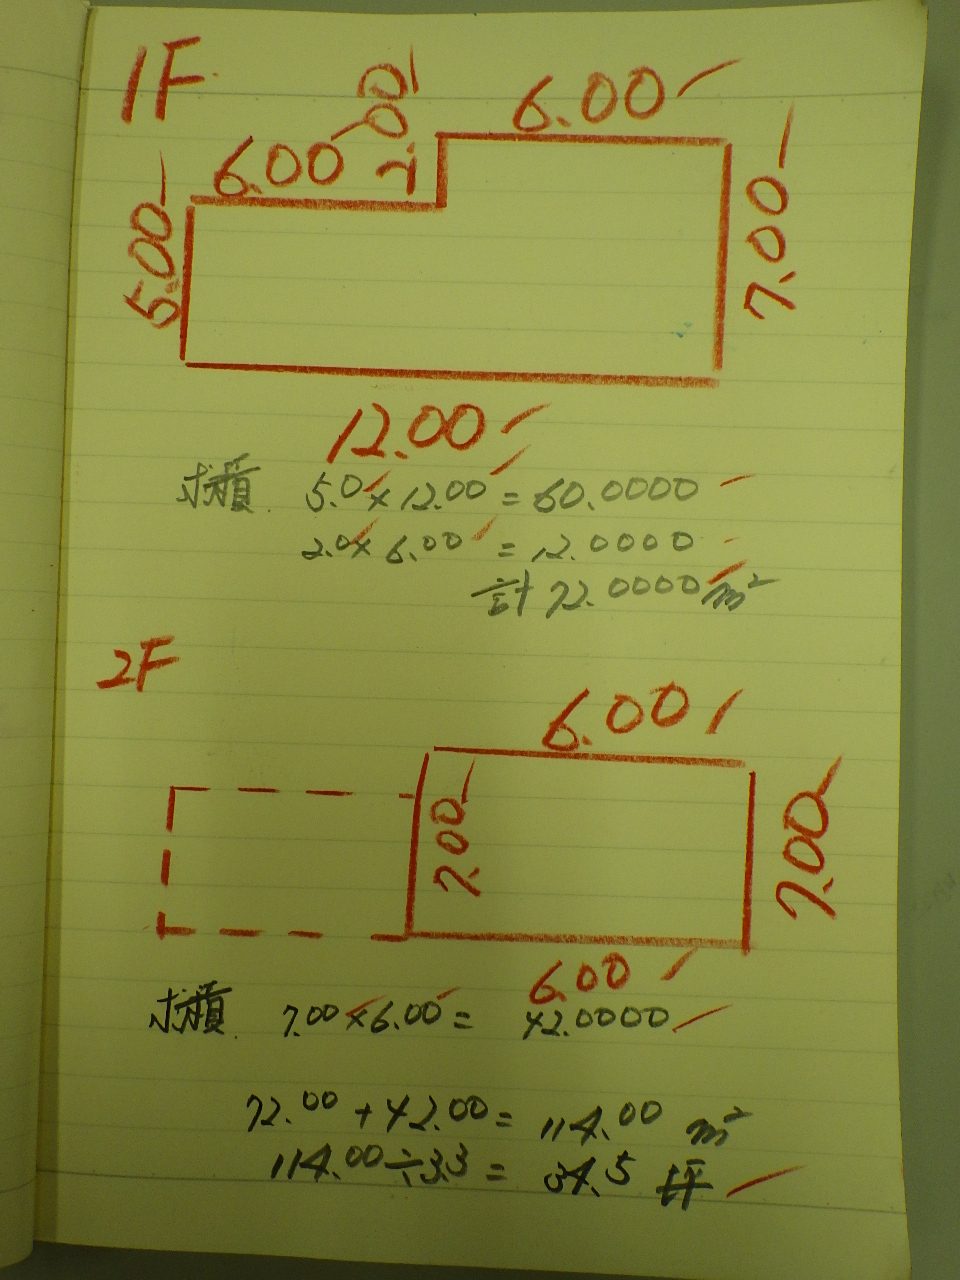 1F
6.00
2.00
6.00
5.00
7.00
12.00
求積 5.0×12.00=60.0000
2.0×6.00=12.0000
計72.0000㎡
2F
6.00
7.00
7.00
6.00
求積 7.00×6.00= 42.0000
72.00+42.00=114.00 ㎡
114.00÷3.3=34.5 坪